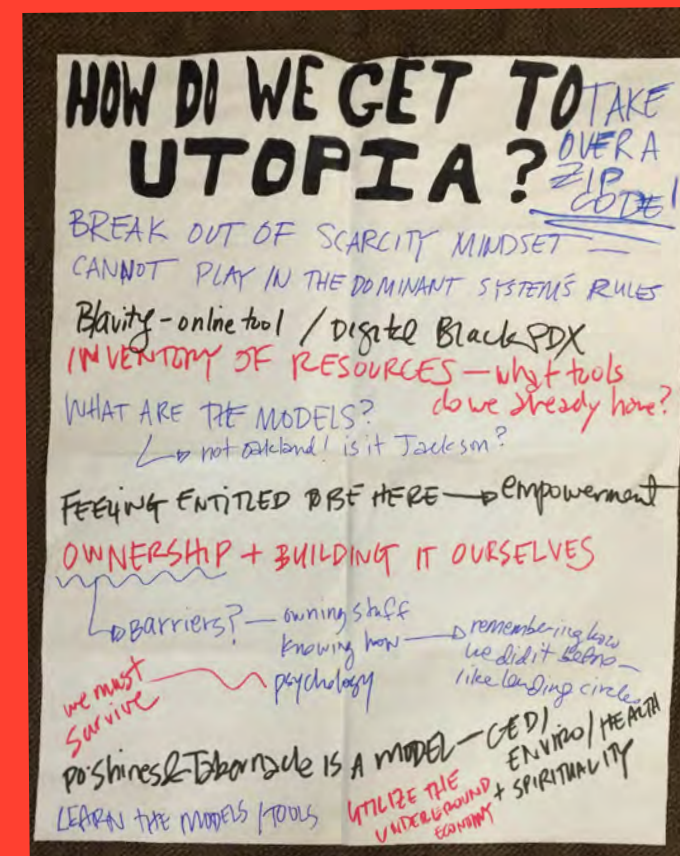 HOW DO WE GET TO
UTOPIA?
TAKE
OVER A
ZIP
CODE!
BREAK OUT OF SCARCITY MINDSET —
CANNOT PLAY IN THE DOMINANT SYSTEM'S RULES
Blavity - online tool / Digital Black PDX
INVENTORY OF RESOURCES — what tools
do we already have?
WHAT ARE THE MODELS?
not oakland! is it Jackson?
FEELING ENTITLED TO BE HERE → empowerment
OWNERSHIP + BUILDING IT OURSELVES
Barriers? — owning stuff
knowing how → remembering how
we did it before —
like lending circles
psychology
we must
survive
po'shines & Tabernacle IS A MODEL — GED/
ENVIRO/HEALTH
+ SPIRITUALITY
LEARN THE MODELS / TOOLS
UTILIZE THE
UNDERGROUND
ECONOMY